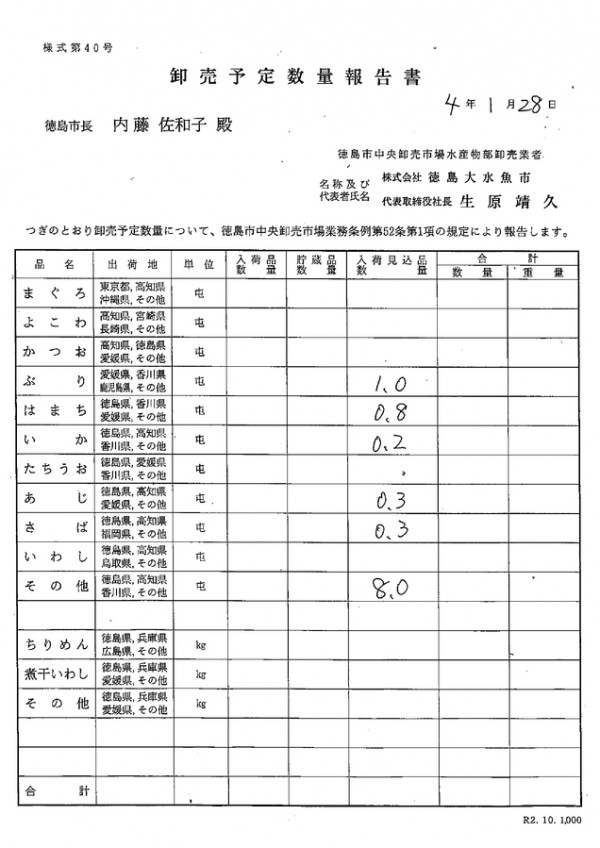 様式第40号
卸売予定数量報告書
4年1月28日
徳島市長 内藤 佐和子 殿
徳島市中央卸売市場水産物部卸売業者
名称及び 株式会社 徳島大水魚市
代表者氏名 代表取締役社長 生原靖久
つぎのとおり卸売予定数量について、徳島市中央卸売市場業務条例第52条第1項の規定により報告します。
品名 出荷地 単位 入荷品数量 貯蔵品数量 入荷見込品数量 合計
数量 重量
まぐろ 東京都,高知県 沖縄県,その他 屯
よこわ 高知県,宮崎県 長崎県,その他 屯
かつお 高知県,徳島県 愛媛県,その他 屯
ぶり 愛媛県,香川県 鹿児島県,その他 屯 1.0
はまち 徳島県,香川県 愛媛県,その他 屯 0.8
いか 徳島県,高知県 香川県,その他 屯 0.2
たちうお 徳島県,愛媛県 香川県,その他 屯
あじ 徳島県,高知県 愛媛県,その他 屯 0.3
さば 徳島県,高知県 福岡県,その他 屯 0.3
いわし 徳島県,高知県 鳥取県,その他 屯
その他 徳島県,高知県 香川県,その他 屯 8.0
ちりめん 徳島県,兵庫県 広島県,その他 kg
煮干いわし 徳島県,兵庫県 愛媛県,その他 kg
その他 徳島県,兵庫県 愛媛県,その他 kg
合計
R2.10.1,000